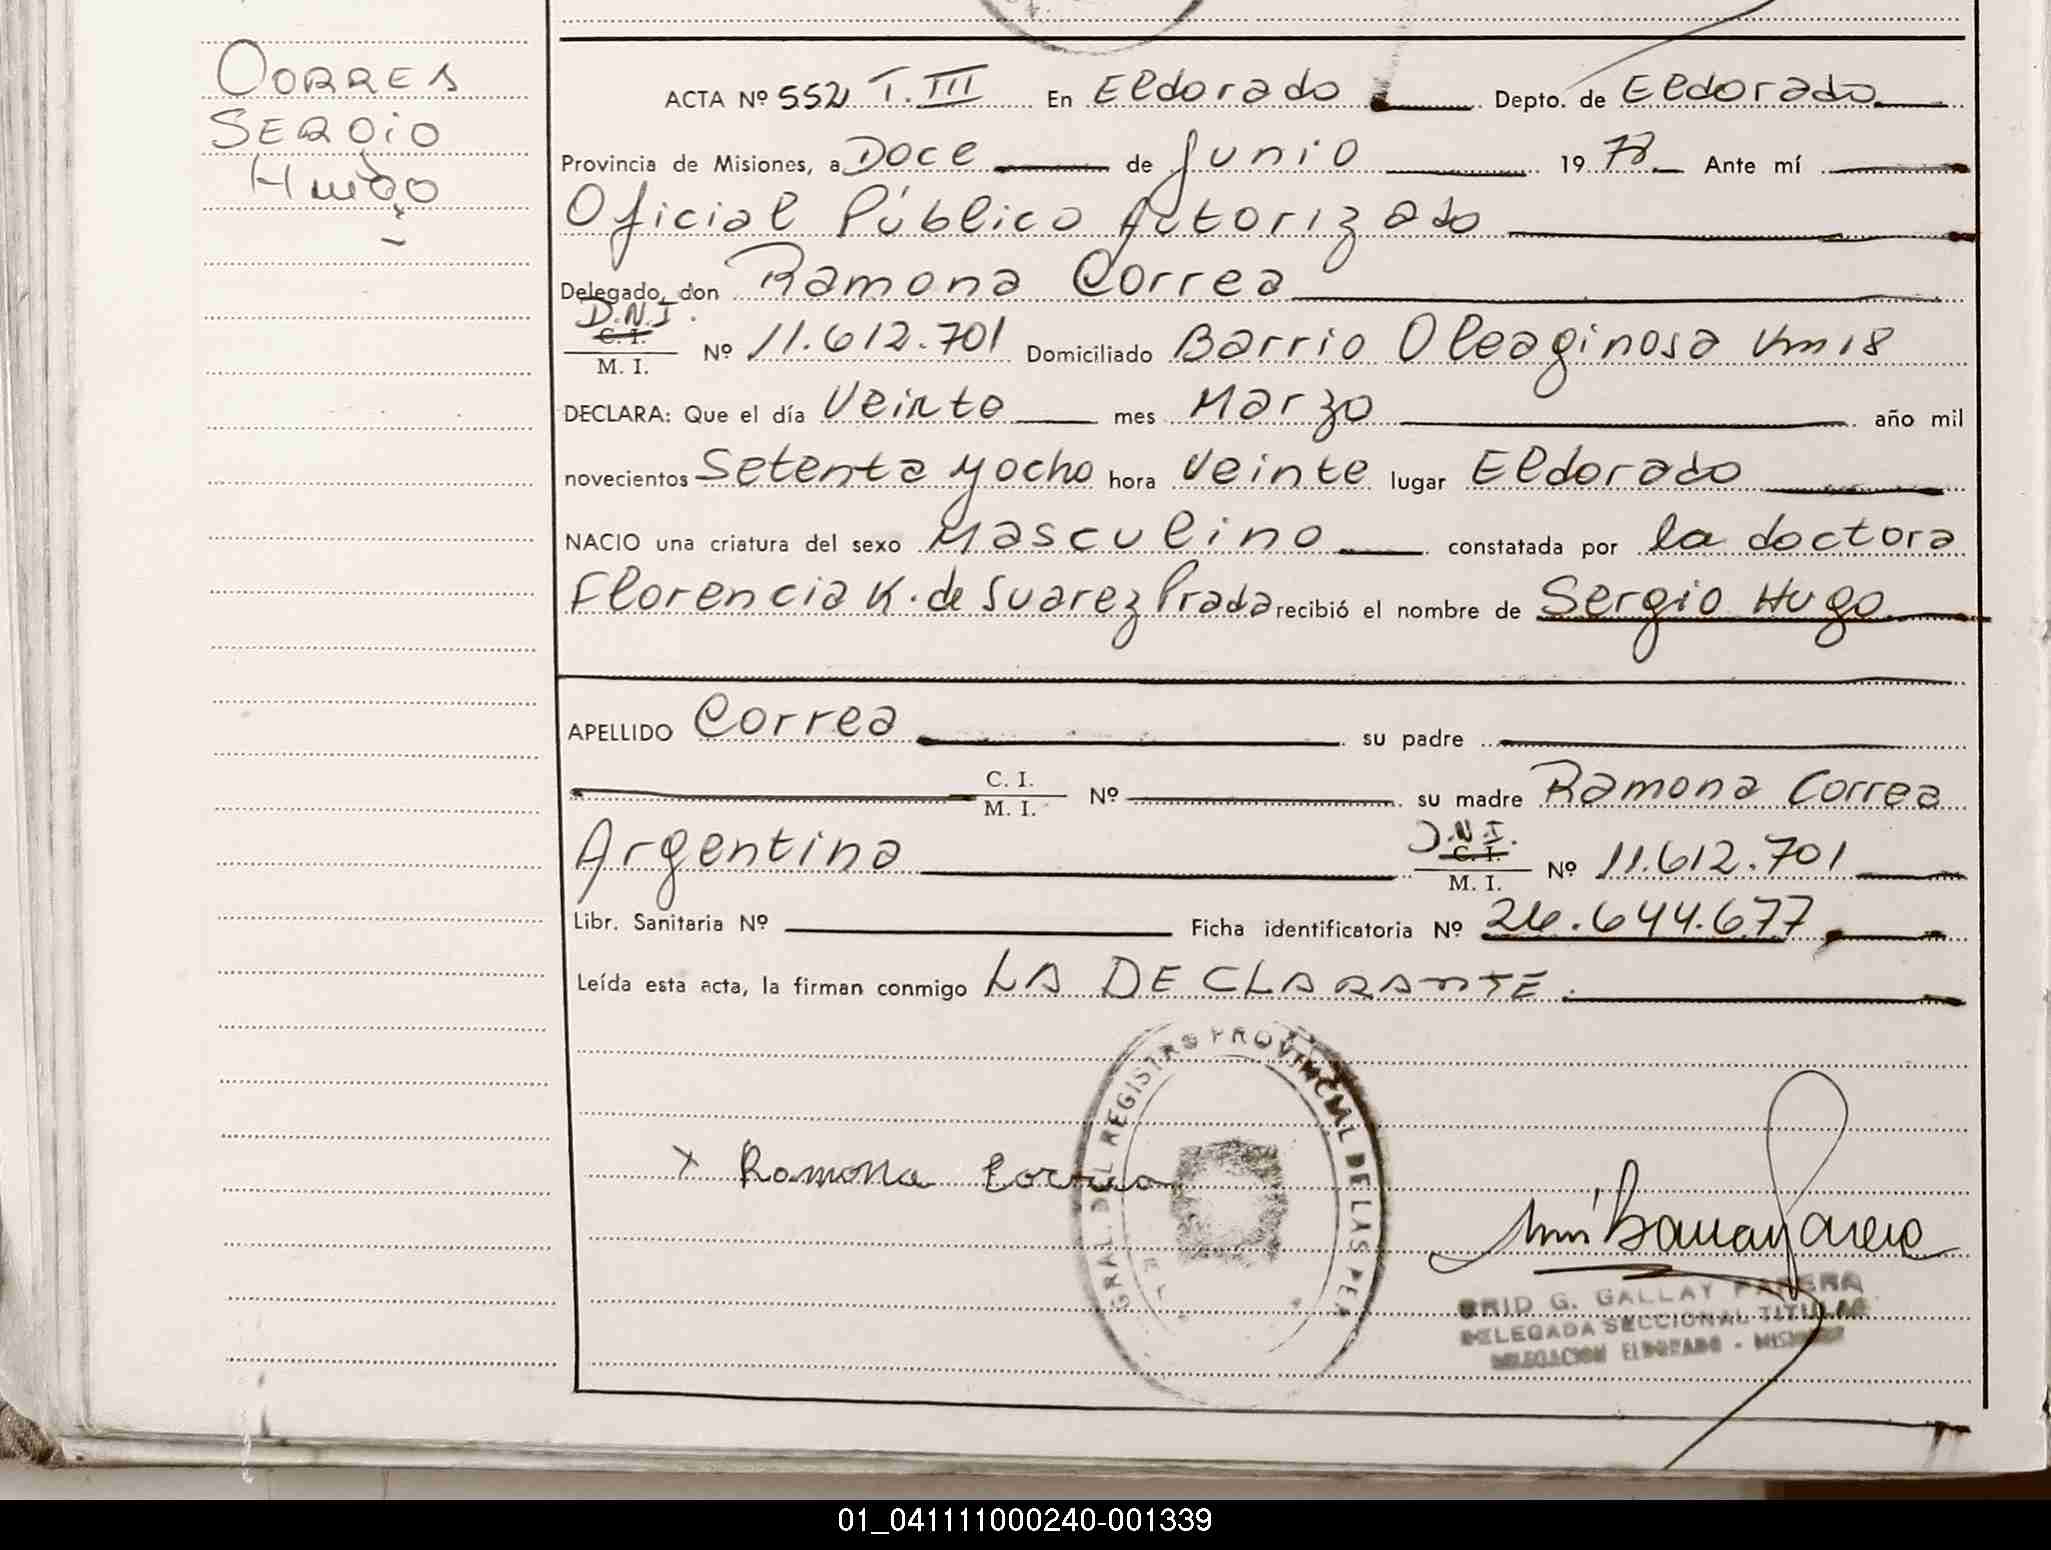 CORREA
SERGIO
HUGO
ACTA Nº 552 T. III En Eldorado Depto. de Eldorado
Provincia de Misiones, a Doce de Junio 19 78 Ante mí
Oficial Público Autorizado
Delegado, don Ramona Correa
D.N.I.
C. I.
M. I. Nº 11.612.701 Domiciliado Barrio Oleaginosa Km 18
DECLARA: Que el día Veinte mes Marzo año mil
novecientos Setenta y ocho hora Veinte lugar Eldorado
NACIO una criatura del sexo Masculino constatada por la doctora
Florencia K. de Suarez Prada recibió el nombre de Sergio Hugo
APELLIDO Correa su padre
C. I.
M. I. Nº su madre Ramona Correa
Argentina D.N.I.
C. I.
M. I. Nº 11.612.701
Libr. Sanitaria Nº Ficha identificatoria Nº 26.644.677
Leída esta acta, la firman conmigo LA DECLARANTE.
GRAL. DEL REGISTRO PROVINCIAL DE LAS PER
x Ramona Correa
G. GALLAY PARERA
DELEGADA SECCIONAL TITULAR
DELEGACION ELDORADO - MISIONES
01_041111000240-001339